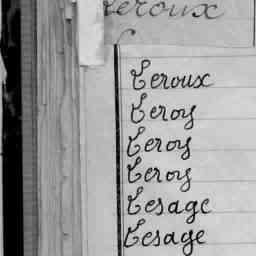 Leroux
Leroux
Leroy
Leroy
Leroy
Lesage
Lesage